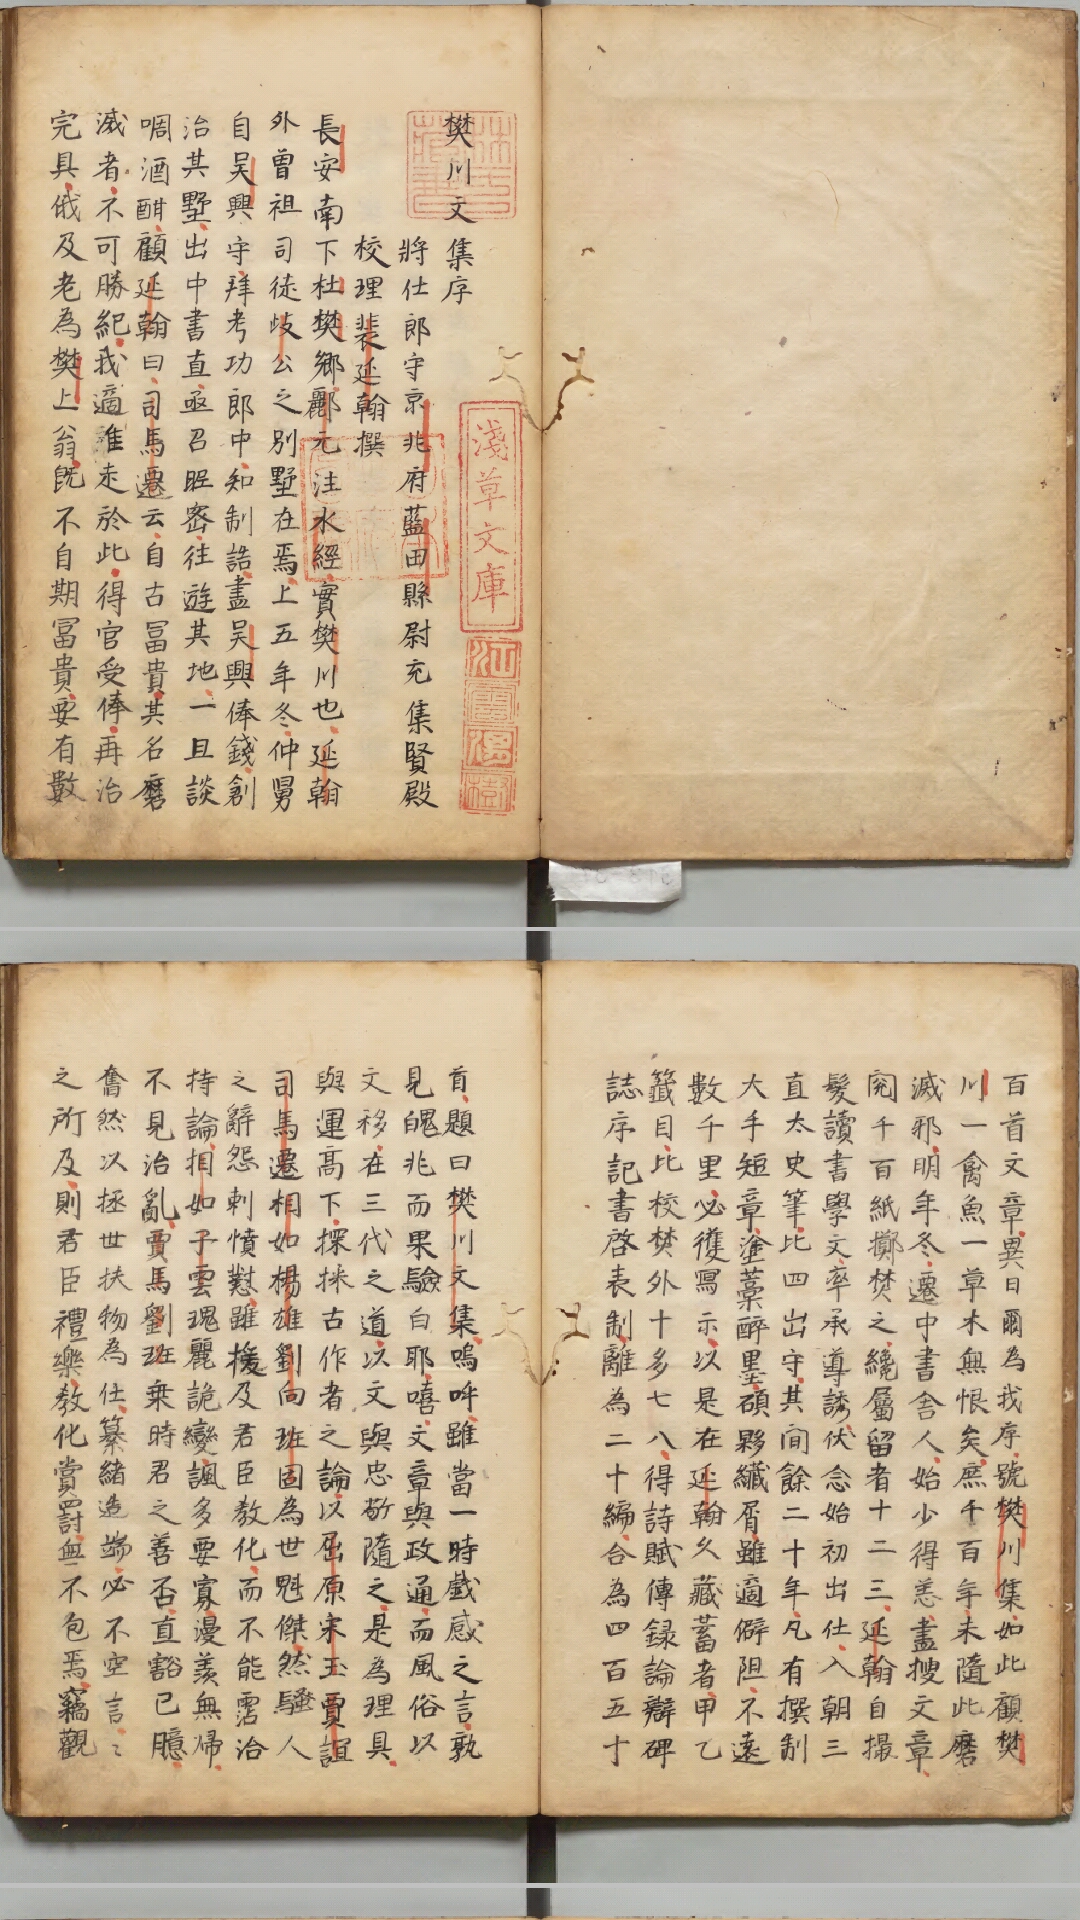 樊川文集序
將仕郎守京兆府藍田縣尉充集賢殿
校理裴延翰撰
長安南下杜樊鄉酈元注水經實樊川也延翰
外曾祖司徒歧公之別墅在焉上五年冬仲舅
自吳興守拜考功郎中知制誥盡吳興俸錢創
治其墅出中書直亟召昵密往遊其地一旦談
啁酒酣顧延翰曰司馬遷云自古冨貴其名磨
滅者不可勝紀我適稚走於此得官受俸再治
完具俄及老為樊上翁既不自期冨貴要有數
淺草文庫
百首文章異日爾為我序號樊川集如此顧樊
川一禽魚一草木無恨矣庶千百年未隨此磨
滅邪明年冬遷中書舍人始少得恙盡搜文章
閱千百紙擲焚之纔屬留者十二三延翰自撮
髮讀書學文率承導誘伏念始初出仕入朝三
直太史筆比四出守其間餘二十年凡有撰制
大手短章塗藁醉墨碩夥纖屑雖適僻阻不遠
數千里必獲寫示以是在延翰久藏蓄者甲乙
籤目比校焚外十多七八得詩賦傳録論辯碑
誌序記書啓表制離為二十編合為四百五十
首題曰樊川文集嗚呼雖當一時戲感之言孰
見魄兆而果驗白耶嘻文章與政通而風俗以
文移在三代之道以文與忠敬隨之是為理具
與運高下探採古作者之論以屈原宋玉賈誼
司馬遷相如楊雄劉向班固為世魁傑然騷人
之辭怨刺憤懟雖援及君臣教化而不能霑洽
持論相如子雲瑰麗詭變諷多要寡漫羨無歸
不見治亂賈馬劉班乗時君之善否直豁已臆
奮然以拯世扶物為任纂緒造端必不空言々
之所及則君臣禮樂教化賞罰無不包焉竊觀